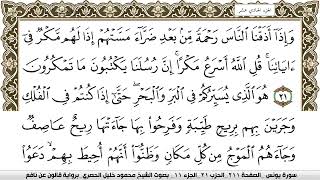 الجزء الحادي عشر
وَإِذَا أَذَقْنَا النَّاسَ رَحْمَةً مِّنْ بَعْدِ ضَرَّاءَ مَسَّتْهُمْ إِذَا لَهُم مَّكْرٌ فِي
ءَايَاتِنَا قُلِ اللَّهُ أَسْرَعُ مَكْرًا إِنَّ رُسُلَنَا يَكْتُبُونَ مَا تَمْكُرُونَ
٢١ هُوَ الَّذِي يُسَيِّرُكُمْ فِي الْبَرِّ وَالْبَحْرِ حَتَّىٰ إِذَا كُنتُمْ فِي الْفُلْكِ
وَجَرَيْنَ بِهِم بِرِيحٍ طَيِّبَةٍ وَفَرِحُوا بِهَا جَاءَتْهَا رِيحٌ عَاصِفٌ
وَجَاءَهُمُ الْمَوْجُ مِن كُلِّ مَكَانٍ وَظَنُّوا أَنَّهُمْ أُحِيطَ بِهِمْ دَعَوُا
سورة يونس . الصفحة ٢١١ . الجزء ١١ . بصوت الشيخ محمود خليل الحصري . برواية قالون عن نافع